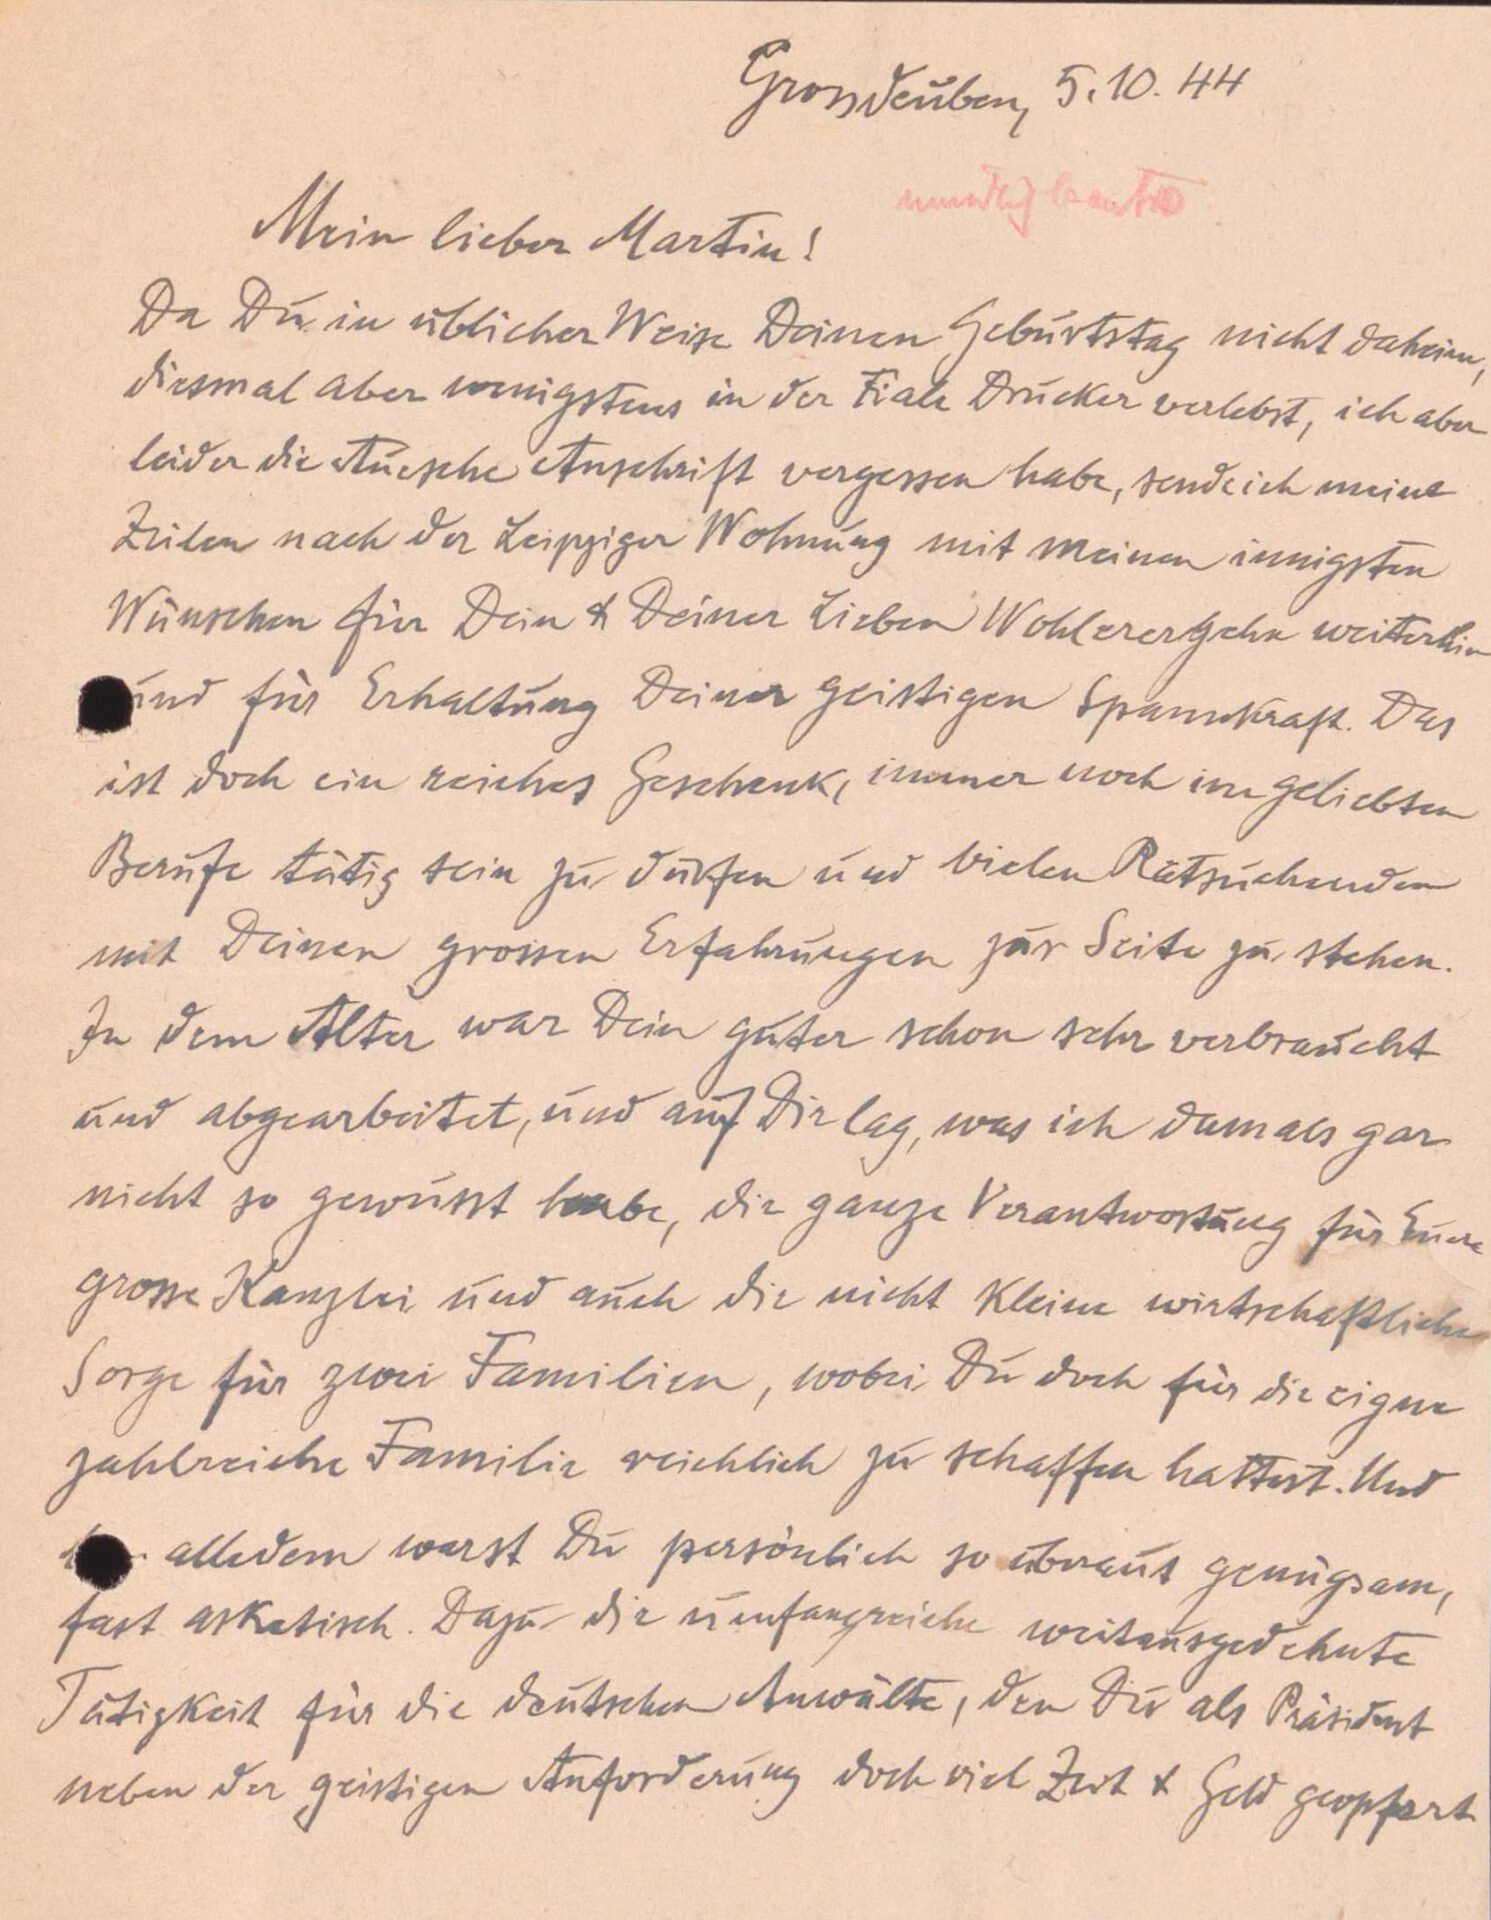 Grossdeuben, 5.10.44
Mein lieber Martin!
Da Du in üblicher Weise Deinen Geburtstag nicht daheim,
diesmal aber wenigstens in der Fiale Drucker verlebst, ich aber
leider die Auesche Anschrift vergessen habe, sende ich meine
Zeilen nach der Leipziger Wohnung mit meinen innigsten
Wünschen für Dein & Deiner Lieben Wohlerergehn weiterhin
und für Erhaltung Deiner geistigen Spannkraft. Das
ist doch ein reiches Geschenk, immer noch im geliebten
Berufe tätig sein zu dürfen und vielen Ratsuchenden
mit Deinen grossen Erfahrungen zur Seite zu stehen.
In dem Alter war Dein guter schon sehr verbraucht
und abgearbeitet, und auf Dir lag, was ich damals gar
nicht so gewusst habe, die ganze Verantwortung für Eure
grosse Kanzlei und auch die nicht kleine wirtschaftliche
Sorge für zwei Familien, wobei Du doch für die eigne
zahlreiche Familie reichlich zu schaffen hattest. Und
alledem warst Du persönlich so überaus genügsam,
fast asketisch. Dazu die umfangreiche weitausgedehnte
Tätigkeit für die deutschen Anwälte, den Du als Präsident
neben der geistigen Anforderung doch viel Zeit & Geld geopfert